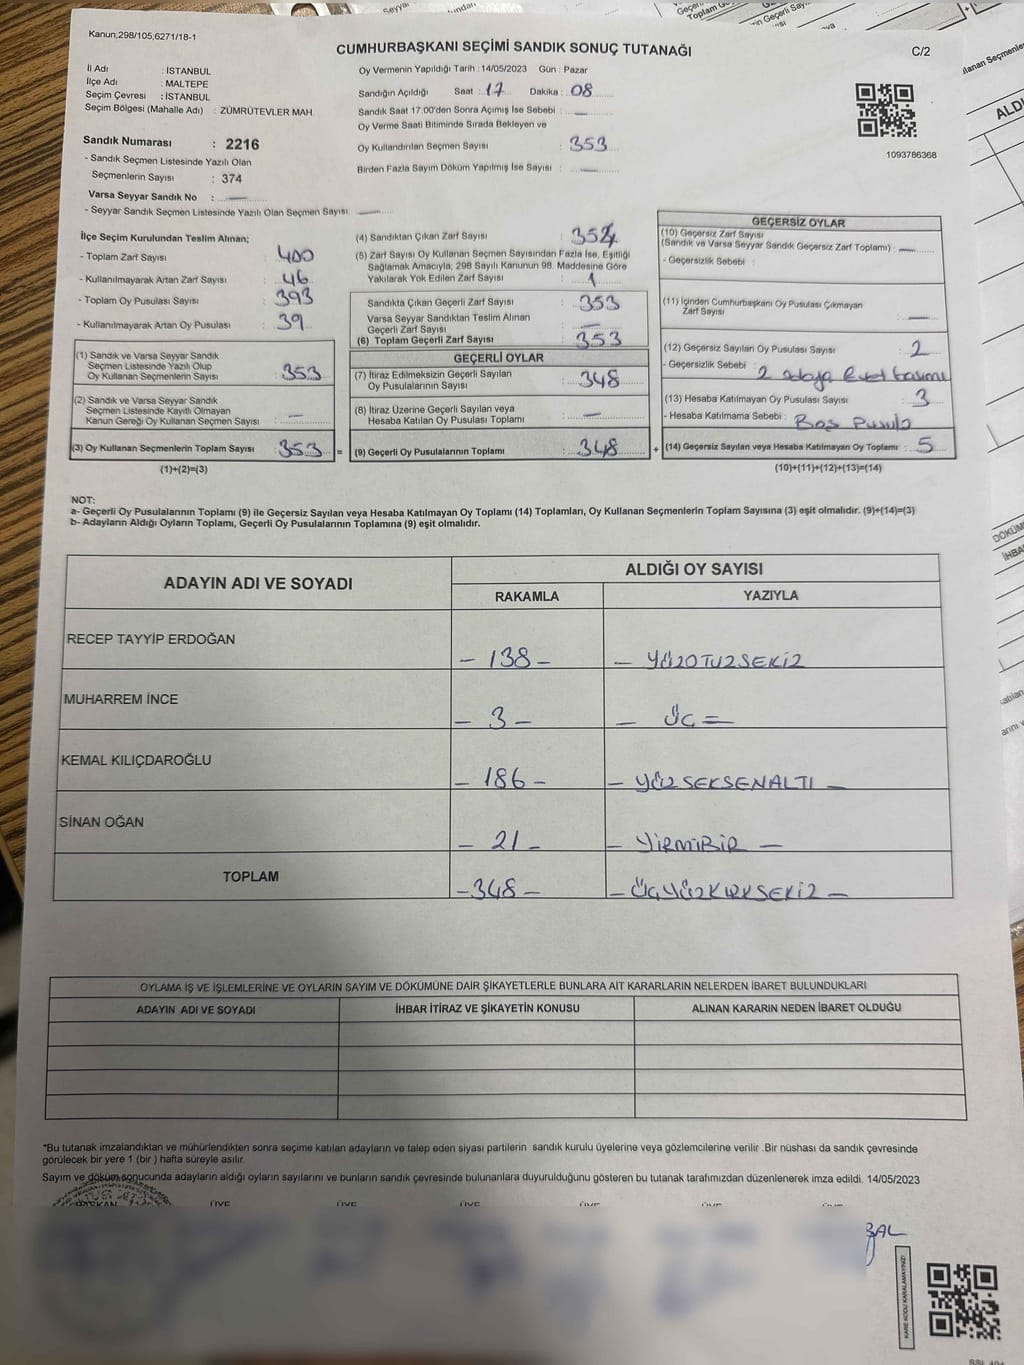 Kanun;298/105;6271/18-1
CUMHURBAŞKANI SEÇİMİ SANDIK SONUÇ TUTANAĞI
C/2
İl Adı : İSTANBUL
İlçe Adı : MALTEPE
Seçim Çevresi : İSTANBUL
Seçim Bölgesi (Mahalle Adı) : ZÜMRÜTEVLER MAH
Oy Vermenin Yapıldığı Tarih : 14/05/2023 Gün : Pazar
Sandığın Açıldığı Saat : 17 Dakika : 08
Sandık Saat 17.00'den Sonra Açımış İse Sebebi : —
Oy Verme Saati Bitiminde Sırada Bekleyen ve
Oy Kullandırılan Seçmen Sayısı : 353
Birden Fazla Sayım Döküm Yapılmış İse Sayısı : —
1093786368
Sandık Numarası : 2216
- Sandık Seçmen Listesinde Yazılı Olan
Seçmenlerin Sayısı : 374
Varsa Seyyar Sandık No : —
- Seyyar Sandık Seçmen Listesinde Yazılı Olan Seçmen Sayısı: —
İlçe Seçim Kurulundan Teslim Alınan;
- Toplam Zarf Sayısı : 400
- Kullanılmayarak Artan Zarf Sayısı : 46
- Toplam Oy Pusulası Sayısı : 393
- Kullanılmayarak Artan Oy Pusulası : 39
(1) Sandık ve Varsa Seyyar Sandık
Seçmen Listesinde Yazılı Olup
Oy Kullanan Seçmenlerin Sayısı : 353
(2) Sandık ve Varsa Seyyar Sandık
Seçmen Listesinde Kayıtlı Olmayan
Kanun Gereği Oy Kullanan Seçmen Sayısı : —
(3) Oy Kullanan Seçmenlerin Toplam Sayısı : 353 =
(1)+(2)=(3)
(4) Sandıktan Çıkan Zarf Sayısı : 354
(5) Zarf Sayısı Oy Kullanan Seçmen Sayısından Fazla İse, Eşitliği
Sağlamak Amacıyla, 298 Sayılı Kanunun 98. Maddesine Göre
Yakılarak Yok Edilen Zarf Sayısı : 1
Sandıkta Çıkan Geçerli Zarf Sayısı : 353
Varsa Seyyar Sandıktan Teslim Alınan
Geçerli Zarf Sayısı : —
(6) Toplam Geçerli Zarf Sayısı : 353
GEÇERLİ OYLAR
(7) İtiraz Edilmeksizin Geçerli Sayılan
Oy Pusulalarının Sayısı : 348
(8) İtiraz Üzerine Geçerli Sayılan veya
Hesaba Katılan Oy Pusulası Toplamı : —
(9) Geçerli Oy Pusulalarının Toplamı : 348 +
GEÇERSİZ OYLAR
(10) Geçersiz Zarf Sayısı
(Sandık ve Varsa Seyyar Sandık Geçersiz Zarf Toplamı) : —
- Geçersizlik Sebebi :
(11) İçinden Cumhurbaşkanı Oy Pusulası Çıkmayan
Zarf Sayısı : —
(12) Geçersiz Sayılan Oy Pusulası Sayısı : 2
- Geçersizlik Sebebi : 2 adaya Evet basımı
(13) Hesaba Katılmayan Oy Pusulası Sayısı : 3
- Hesaba Katılmama Sebebi : Boş Pusula
(14) Geçersiz Sayılan veya Hesaba Katılmayan Oy Toplamı : 5
(10)+(11)+(12)+(13)=(14)
NOT:
a- Geçerli Oy Pusulalarının Toplamı (9) ile Geçersiz Sayılan veya Hesaba Katılmayan Oy Toplamı (14) Toplamları, Oy Kullanan Seçmenlerin Toplam Sayısına (3) eşit olmalıdır. (9)+(14)=(3)
b- Adayların Aldığı Oyların Toplamı, Geçerli Oy Pusulalarının Toplamına (9) eşit olmalıdır.
ADAYIN ADI VE SOYADI
ALDIĞI OY SAYISI
RAKAMLA YAZIYLA
RECEP TAYYİP ERDOĞAN – 138 – – YÜZOTUZSEKİZ
MUHARREM İNCE – 3 – – ÜÇ =
KEMAL KILIÇDAROĞLU – 186 – – YÜZSEKSENALTI –
SİNAN OĞAN – 21 – – YİRMİBİR –
TOPLAM – 348 – – ÜÇYÜZKIRKSEKİZ –
OYLAMA İŞ VE İŞLEMLERİNE VE OYLARIN SAYIM VE DÖKÜMÜNE DAİR ŞİKAYETLERLE BUNLARA AİT KARARLARIN NELERDEN İBARET BULUNDUKLARI
ADAYIN ADI VE SOYADI İHBAR İTİRAZ VE ŞİKAYETİN KONUSU ALINAN KARARIN NEDEN İBARET OLDUĞU
*Bu tutanak imzalandıktan ve mühürlendikten sonra seçime katılan adayların ve talep eden siyasi partilerin sandık kurulu üyelerine veya gözlemcilerine verilir .Bir nüshası da sandık çevresinde
görülecek bir yere 1 (bir ) hafta süreyle asılır.
Sayım ve döküm sonucunda adayların aldığı oyların sayılarını ve bunların sandık çevresinde bulunanlara duyurulduğunu gösteren bu tutanak tarafımızdan düzenlenerek imza edildi. 14/05/2023
BAŞKAN ÜYE ÜYE ÜYE ÜYE ÜYE ÜYE
KARE KODU KARALAMAYINIZ!